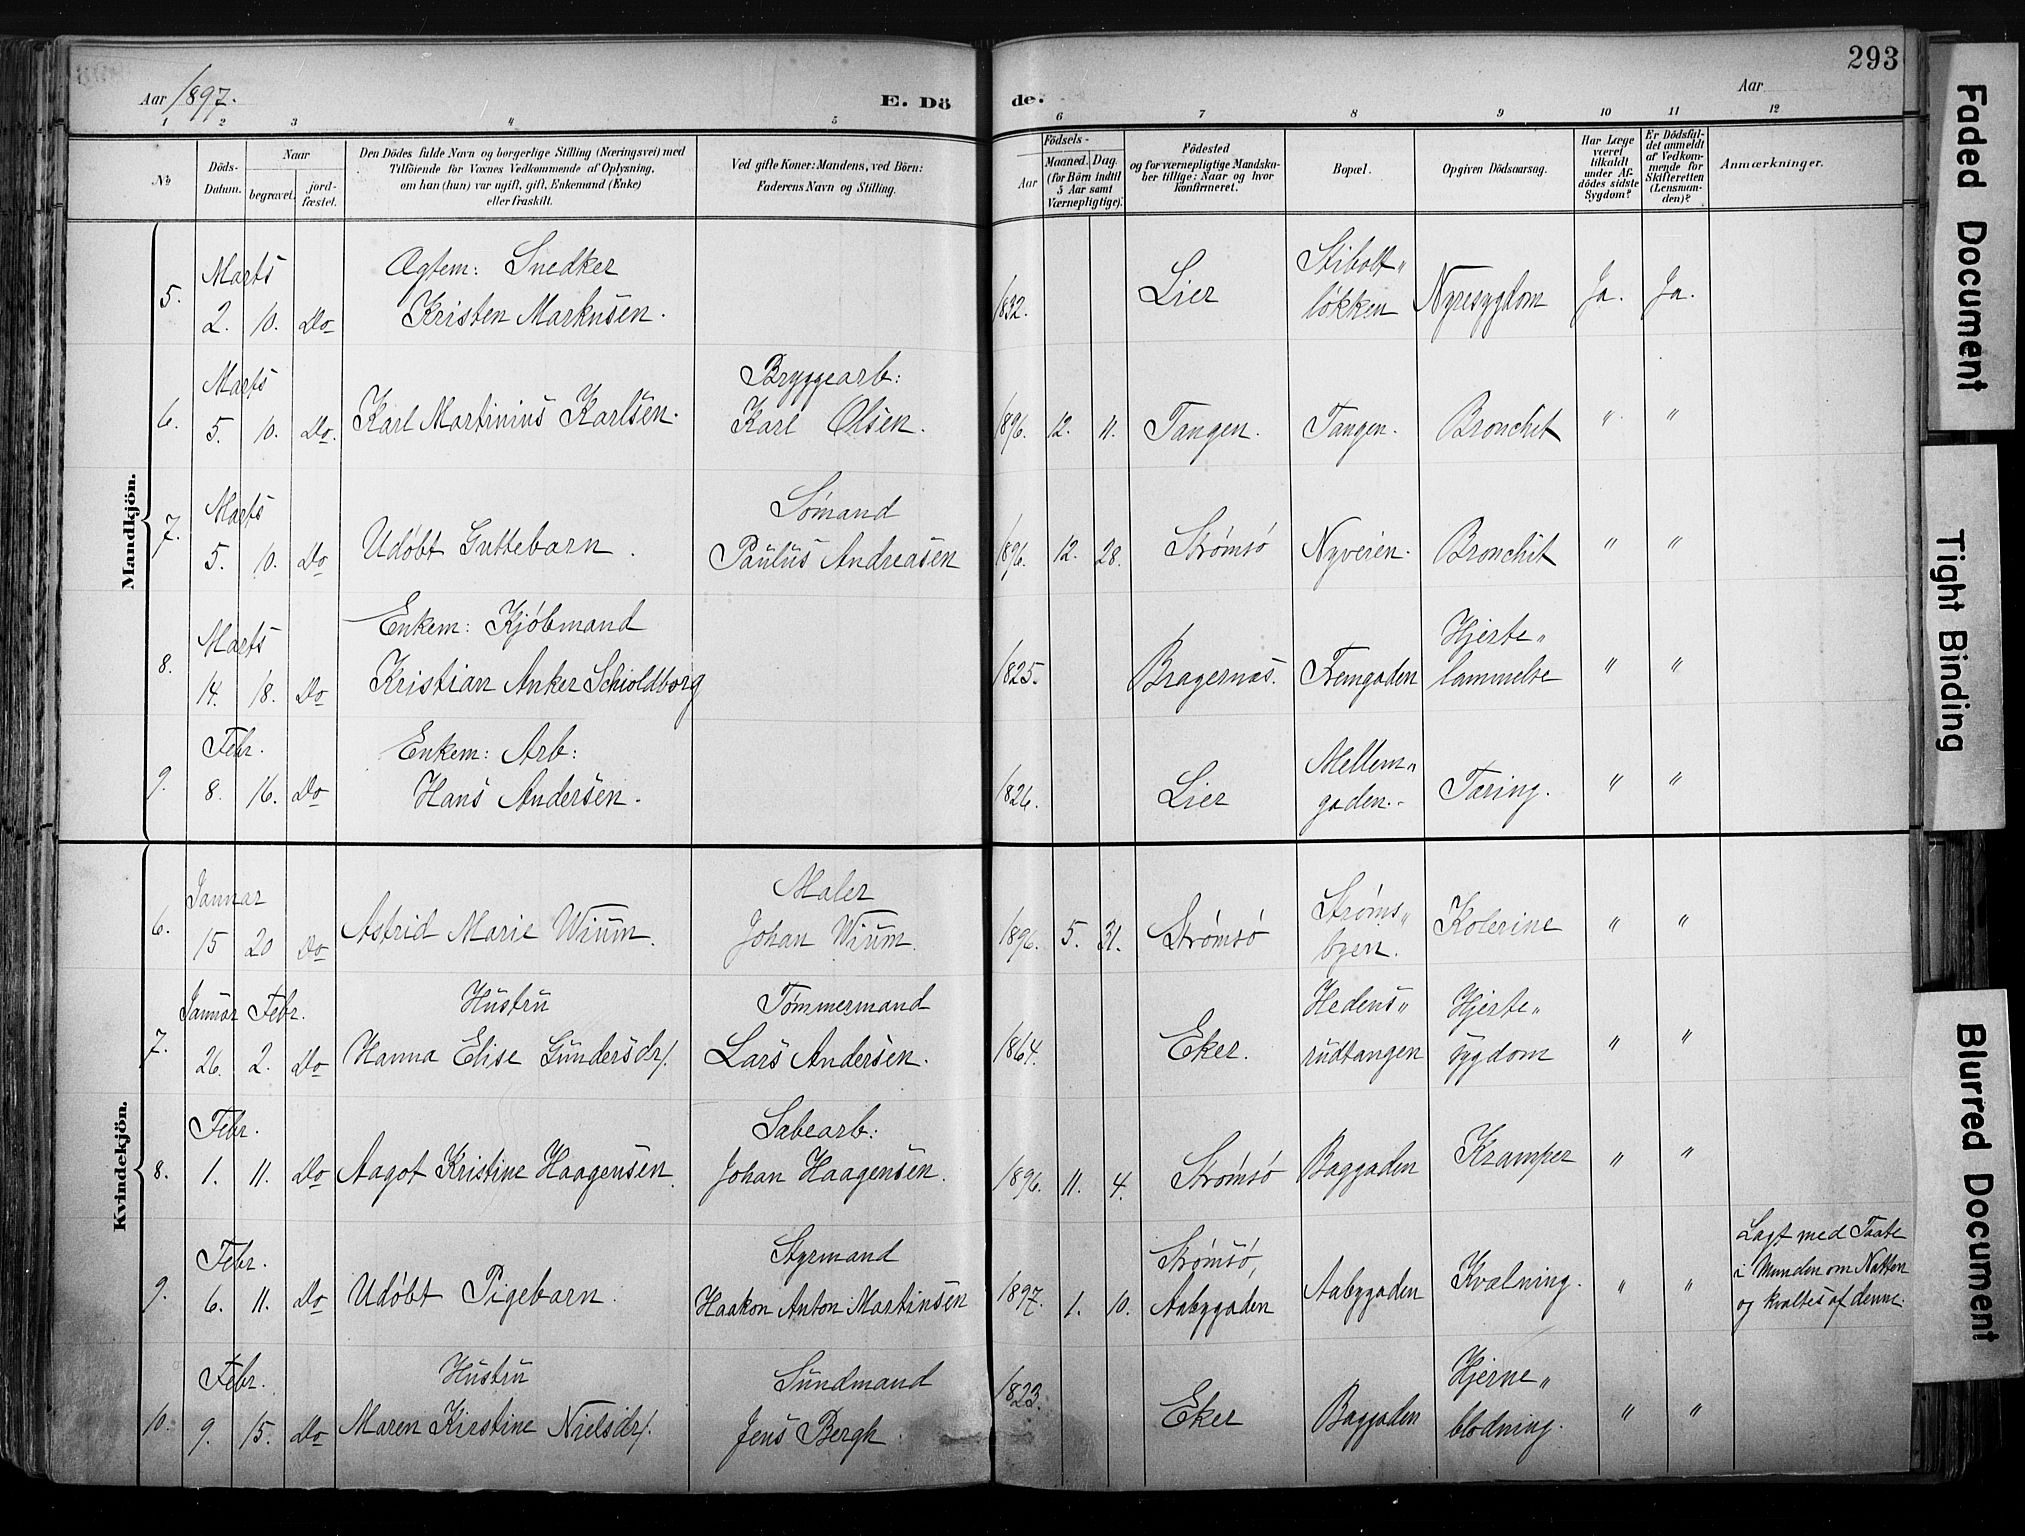 293
Aar 1897.
E. Dö
de.
Aar
1 2 3 4 5 6 7 8 9 10 11 12
No
Döds-
Datum.
Naar
begravet.
jord-
fæstet.
Den Dödes fulde Navn og borgerlige Stilling (Næringsvei) med
Tilföiende for Voxnes Vedkommende af Oplysning,
om han (hun) var ugift, gift, Enkemand (Enke)
eller fraskilt.
Ved gifte Koner: Mandens, ved Börn:
Faderens Navn og Stilling.
Födsels-
Aar
Maaned. Dag.
(for Börn indtil
5 Aar samt
Værnepligtige).
Födested
og for værnepligtige Mandska-
ber tillige: Naar og hvor
konfirmeret.
Bopæl.
Opgiven Dödsaarsag.
Har Læge
været
tilkaldt
under Af-
dödes sidste
Sygdom?
Er Dödsfal-
det anmeldt
af Vedkom-
mende for
Skifteretten
(Lensman-
den)?
Anmærkninger.
Mandkjön.
5. Marts 2. 10. Do
Ægtem: Snedker
Kristen Markusen.
1832. Lier
Stibolt„
løkken
Nyresygdom Ja. Ja.
6. Marts 5. 10. Do.
Karl Martinius Karlsen.
Bryggearb:
Karl Olsen.
1896. 12. 11. Tangen. Tangen. Bronchit " "
7. Marts 5. 10. Do
Udøbt Guttebarn.
Sømand
Paulus Andreasen
1896. 12. 28. Strømsø Nyveien. Bronchit " "
8. Marts 14. 18. Do
Enkem: Kjøbmand
Kristian Anker Schioldborg
1825. Bragernæs. Tremgaden
Hjerte„
lammelse " "
9. Febr. 8. 16. Do
Enkem: Arb:
Hans Andersen.
1826. Lier
Mellem„
gaden.
Tæring. " "
Kvindekjön.
6. Januar 15 20 Do
Astrid Marie Wium.
Maler
Johan Wium.
1896. 5. 31. Strømsø
Strøms„
byen.
Kolerine " "
7. Januar Febr. 26. 2. Do
Hustru
Hanna Elise Gundersdr/.
Tømmermand
Lars Andersen.
1864. Eker.
Hedens„
rudtangen
Hjerte„
sygdom " "
8. Febr. 1. 11. Do
Aagot Kristine Haagensen.
Sabearb:
Johan Haagensen.
1896. 11. 4. Strømsø Baggaden Kramper " "
9. Febr. 6. 11. Do
Udøbt Pigebarn.
Styrmand
Haakon Anton Martinsen
1897. 1. 10.
Strømsø,
Aabygaden
Aabygaden Kvælning. " "
Lagt med Taate
i Munden om Natten
og kvaltes af denne.
10. Febr. 9. 15. Do
Hustru
Maren Kirstine Nielsdr/.
Sundmand
Jens Bergh
1823. Eker Baggaden
Hjerne„
blødning. " "
Faded Document
Tight Binding
Blurred Document